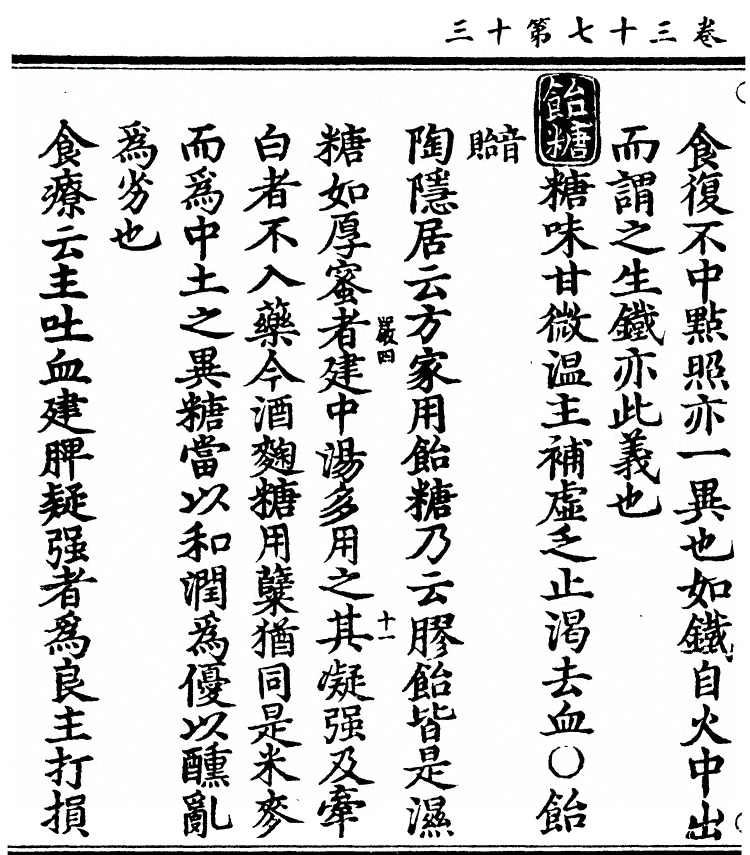 卷三十七第十三
食復不中點照亦一異也如鐵自火中出
而謂之生鐵亦此義也
飴糖糖味甘微温主補虛乏止渴去血〇飴
音貽
陶隱居云方家用飴糖乃云膠飴皆是濕
嚴四
十一
糖如厚蜜者建中湯多用之其凝强及牽
白者不入藥今酒麴糖用糵猶同是米麥
而爲中土之異糖當以和潤爲優以醺亂
爲劣也
食療云主吐血建脾凝强者爲良主打損